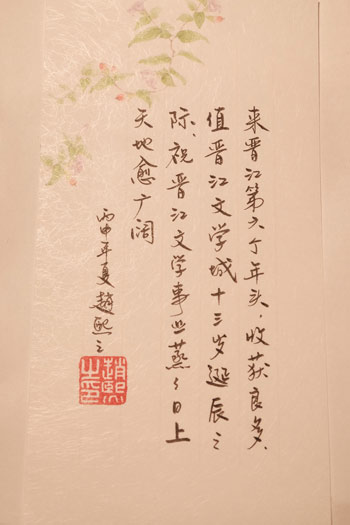 来晋江第六个年头,收获良多、
值晋江文学城十三岁诞辰之
际、祝晋江文学事业蒸々日上
天地愈广阔
丙申年夏趙熙之
趙熙之印